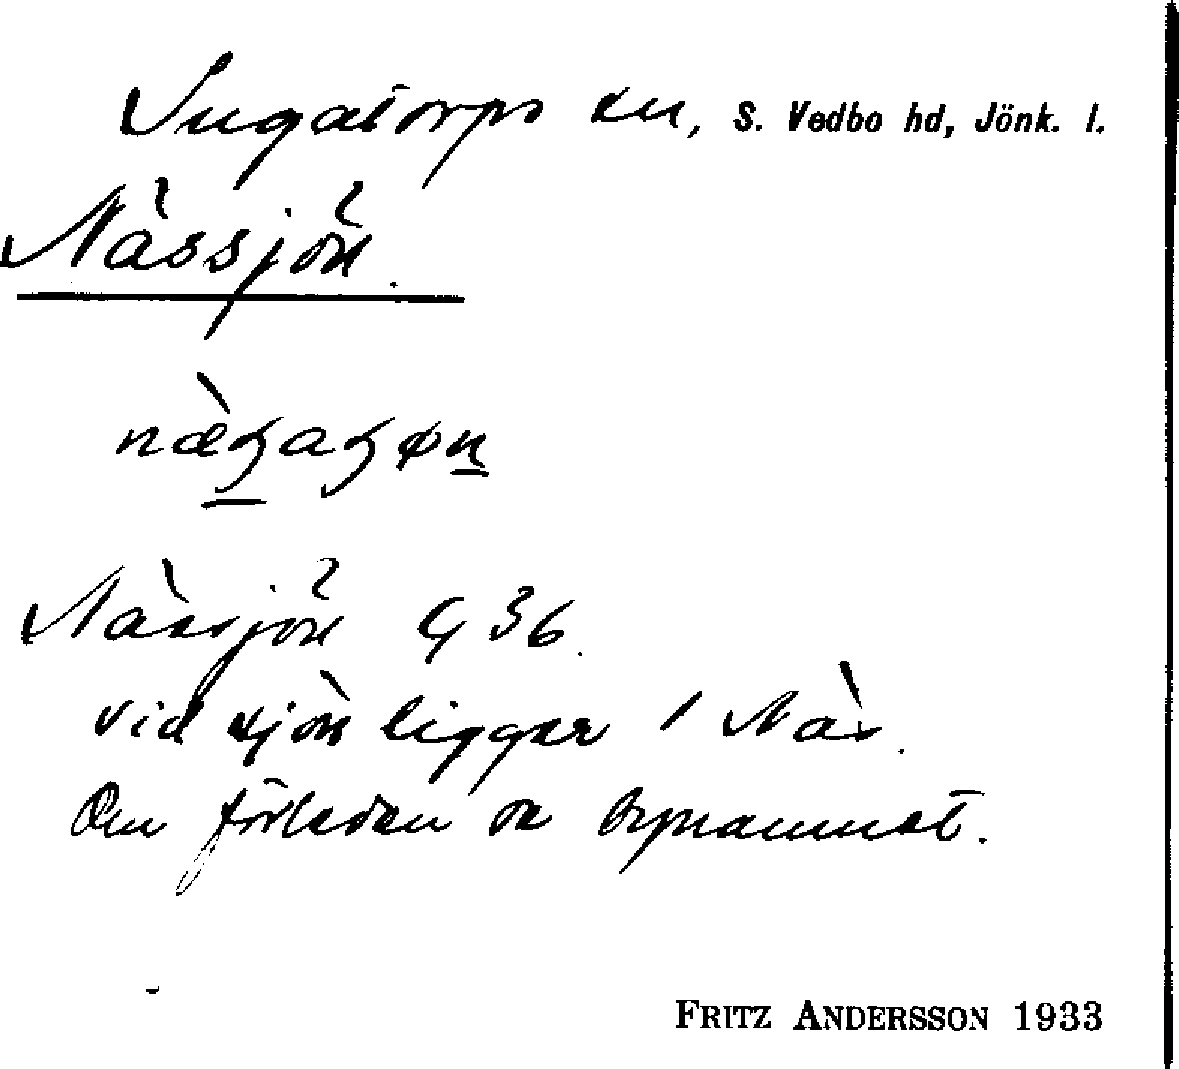 Ingatorps sn, S. Vedbo hd, Jönk. l.
Nässjön
Nässjön G 36.
Vid sjön ligger 1 Näs.
Om förleden se bynamnet.
FRITZ ANDERSSON 1933